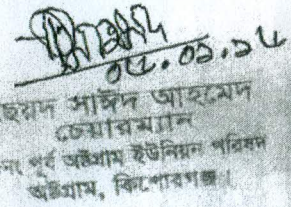 ০৫.০১.১৫
ছয়দ সাঈদ আহমেদ
চেয়ারম্যান
নং পূর্ব অষ্টগ্রাম ইউনিয়ন পরিষদ
অষ্টগ্রাম, কিশোরগঞ্জ।